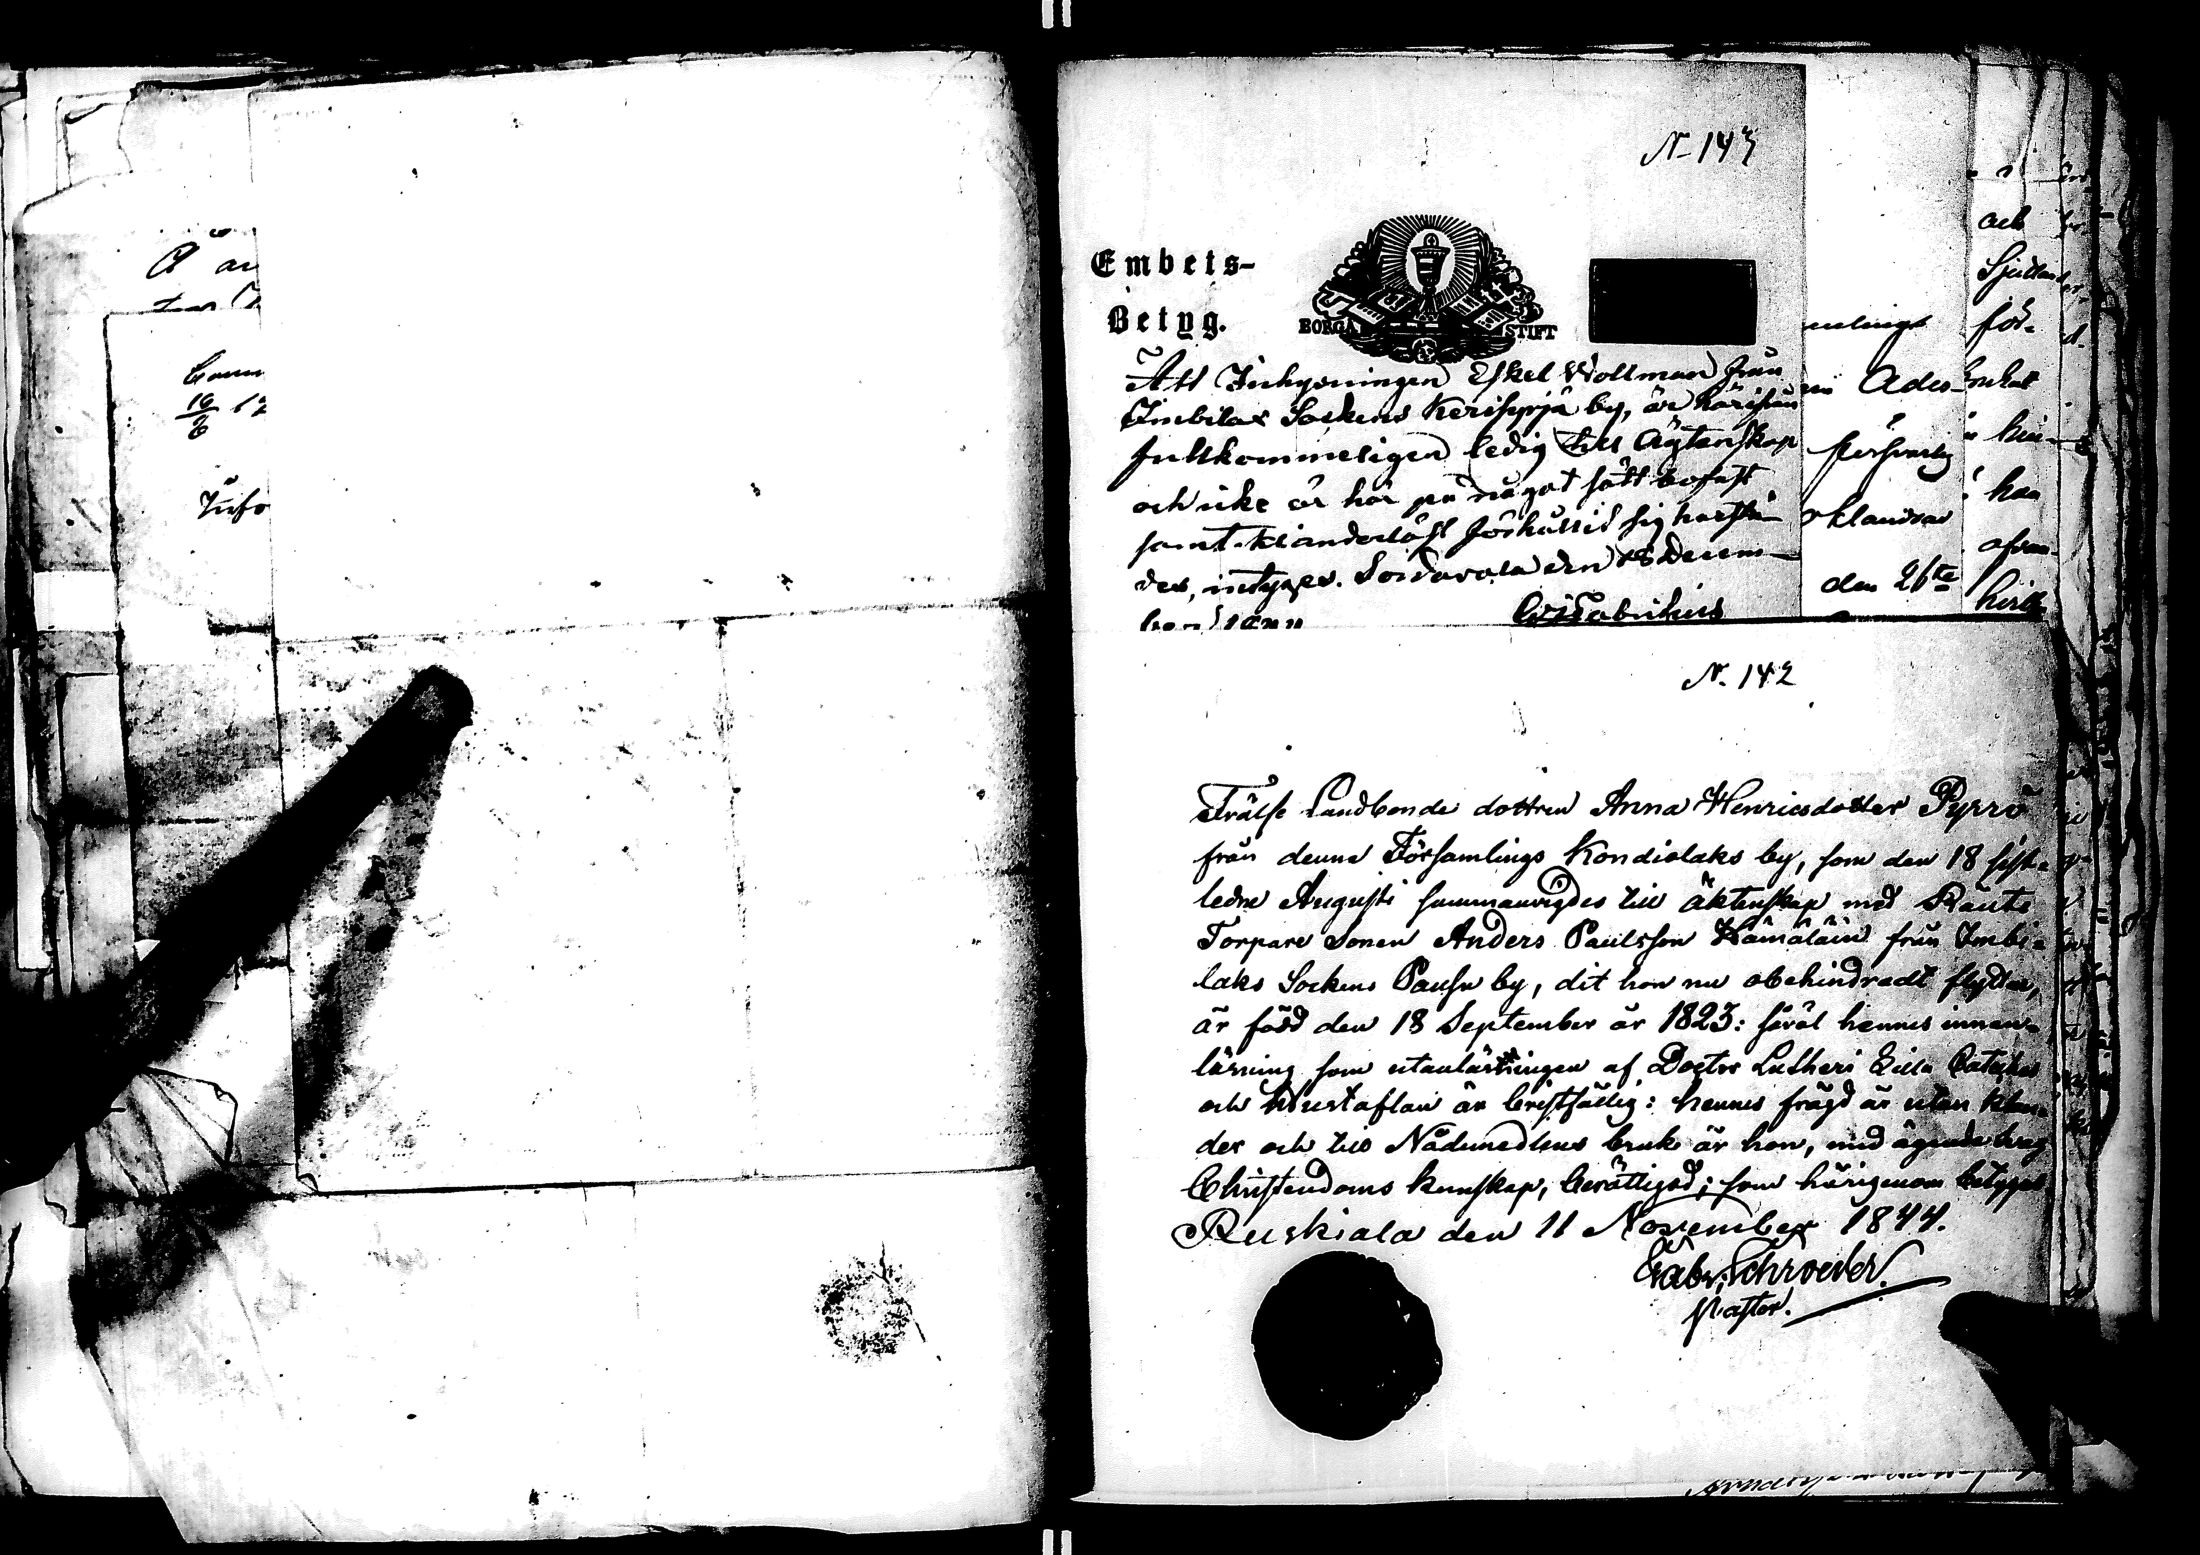 N. 143
Embets-
Betyg.
BORGÅ STIFT
Att Inhysningen Eskel Wollman från
Imbilax Sockens Kerisyrjä by, är härifrån
fullkommeligen ledig till Ägtenskap
och icke är här på något sätt bofast
samt klanderlöst förhållit sig härstä-
des, intygar. Sordavala den 18 Decem-
ber
N. 142
Frälse Landbonde dottren Anna Henricsdotter Pyrrö
från denna Församlings Kondiolaks by, som den 18 sist-
ledne Augusti sammanvigdes till äktenskap med
Torpare Sonen Anders Paulsson Hämäläin från Imbi-
laks Sockens Pausu by, dit hon nu obehindradt flyttar,
är född den 18 September år 1823: såväl hennes innan-
läsning som utanläsningen af Doctor Lutheri Lilla
och Hustaflan är bristfällig: hennes frägd är utan klan-
der och till Nådemedlens bruk är hon, med ägande svag
Christendoms kunskap, berättigad; som härigenom betygas
Ruskiala den 11 November 1844.
Gabr. Schroeder.
Pastor.
A
Comm
16
6
Info
Ades-
försvarlig
den 26te
och
för-
han